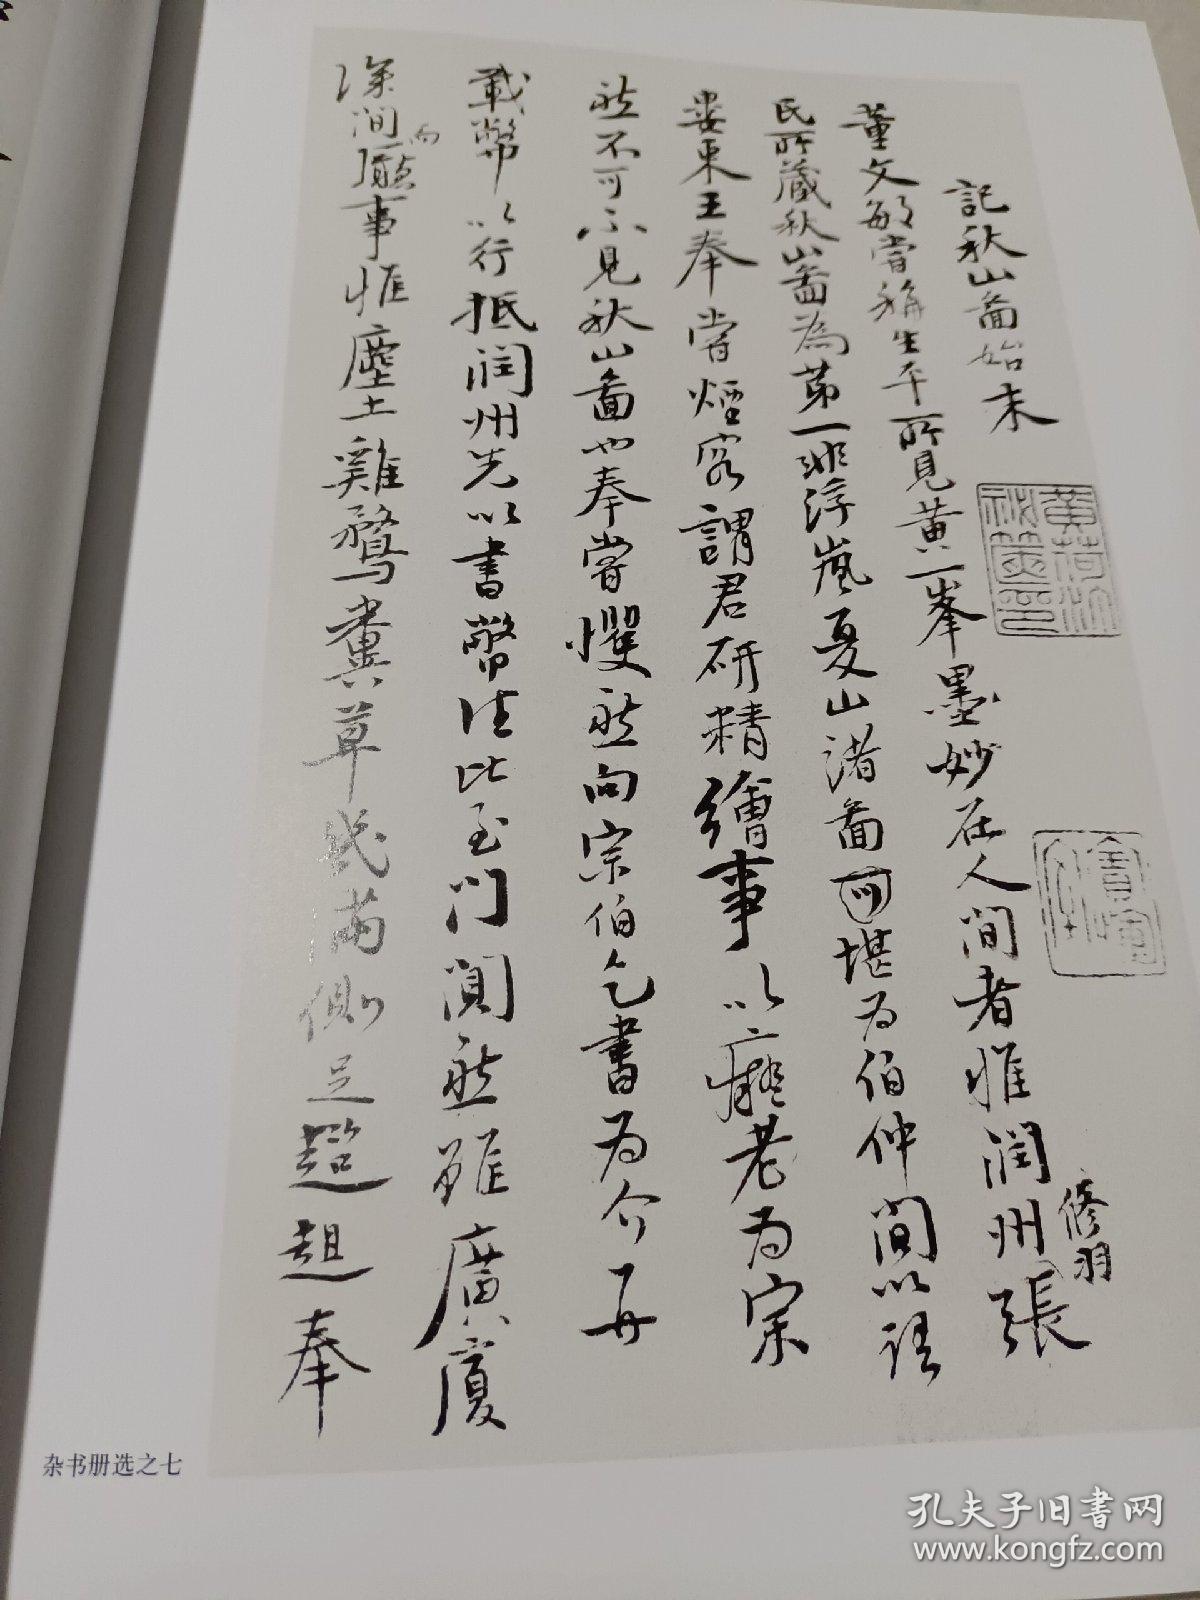 記秋山啚始末
董文敏嘗稱生平所見黃一峯墨妙在人間者惟潤州張
修羽
氏所藏秋山啚為第一非浮嵐夏山諸啚可堪为伯仲間以語
婁東王奉嘗煙客謂君研精繪事以癡老为宗
然不可不見秋山啚也奉嘗戄然向宗伯乞書为介并
載幣以行抵潤州先以書幣往比至門闃然雖廣廈
深間廳事惟塵土雞鶩糞草幾滿側足趦趄奉
而
杂书册选之七
孔夫子旧书网
www.kongfz.com